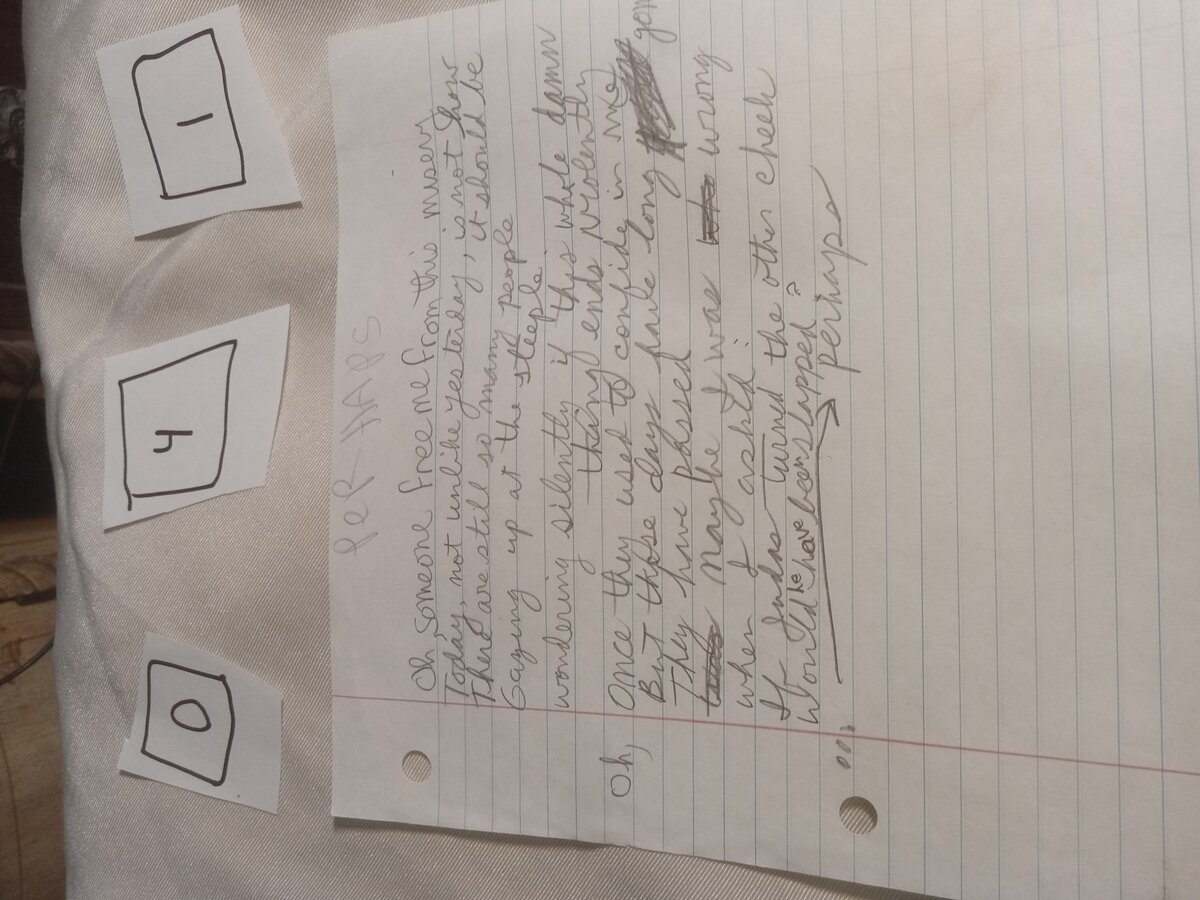 0 4 1
PeRHAPS
Oh, someone free me from this misery
Today, not unlike yesterday, is not how
There are still so many people, it should be
Gazing up at the steeple
wondering silently if this whole damn
thing ends violently
Oh, Once they used to confide in me
But those days have long gon
They have passed
Maybe I was wrong
when I asked:
If Judas turned the other cheek
would he have been slapped?
... perhaps